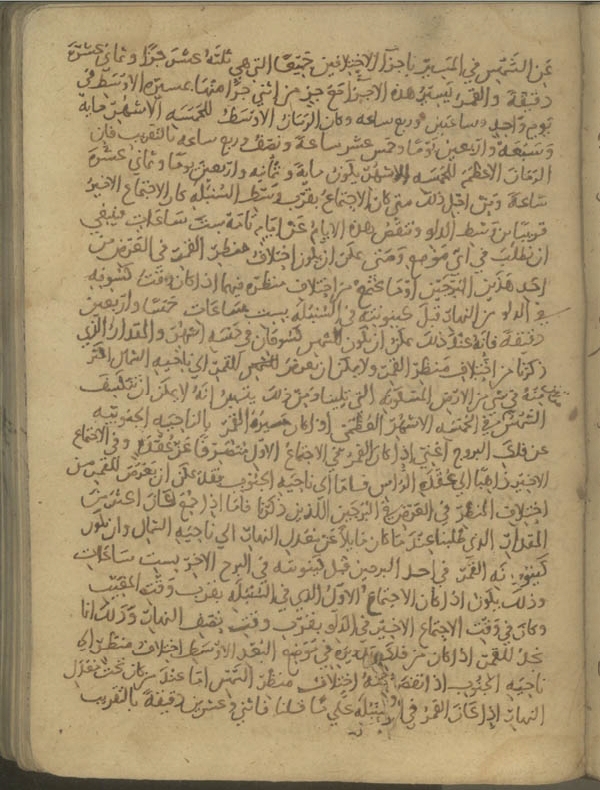 عن الشمس في المسير باجزآ الاختلافين جميعا التي هي ثلثة عشر جزا وثماني عشرة
دقيقة والقمر يسير هذه الاجزا مع جز من اثني جزا منها عسيره الاوسط في
يوم واحد وساعتين وربع ساعه وكان الزمان الاوسط للخمسه الاشهر مايه
وسبعة واربعين يوما وخمس عشر ساعة ونصف وربع ساعه بالتقريب فان
الزمان الاعظم للخمسه الاشهر يكون مايه وثمانيه واربعين يوما وثماني عشرة
ساعة ومن اجل ذلك متي كان الاجتماع بقرب وسط السنبله كان الاجتماع الاخير
قريبا من وسط الدلو وتنقص هذه الايام عن ايام تامة ست ساعات فينبغي
ان نطلب في اي موضع ومتي يمكن ان يكون اختلاف منظر القمر في العرض من
احد هذين البرجين او ما يجتمع من اختلاف منظره فيهما اذا كان وقت كسوفه
في الدلو من النهار قبل كينونته في السنبله بست ساعات خمسا واربعين
دقيقة فانه عند ذلك يمكن ان يكون للشمس كسوفان في خمسة اشهر والمقدار الذي
ذكرنا من اختلاف منظر القمر ولا يمكن ان يعرض للقمر الي ناحيه الشمال اكثر
في شي من الارض المسكونة التي تلينا ومن ذلك يتبين انه لا يمكن ان تنكسف
الشمس في الخمسه الاشهر العظمي اذا كان مسيره القمر بالناحيه الجنوبيه
عن فلك البروج اعني اذا كان القمر في الاجتماع الاول منصرفا عن عقدة وفي الاجتماع
الاخير ذاهبا الي عقدة الراس فاما الي ناحيه الجنوب فقد يمكن ان يعرض للقمر من
اختلاف المنظر في العرض في البرجين اللذين ذكرنا فاما اذا جمع كان اعشر من
المقدار الذي طلبنا عند ما كان مايلا عن معدل النهار الي ناحيه الشمال وان يكون
كينونه القمر في احد البرجين قبل كينونته في البرج الاخر بست ساعات
وذلك يكون اذا كان الاجتماع الاول الذي في السنبله بقرب وقت المغيب
وكان في وقت الاجتماع الاخير في الدلو بقرب وقت نصف النهار وذلك انا
نجد للقمر اذا كان من فلك تدويره في موضع البعد الاوسط اختلاف منظر الي
ناحيه الجنوب اذا انقص منه اختلاف منظر الشمس اما عند من كان تحت معدل
النهار اذا كان القمر في السنبله علي ما قلنا فاثني وعشرين دقيقة بالتقريب